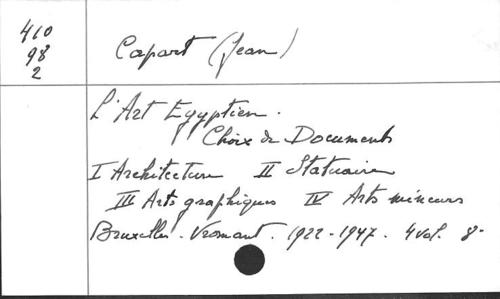 410
98
2
Capart (Jean)
L'Art Egyptien.
Choix de Documents
I Architecture II Statuaire
III Arts graphiques IV Arts mineurs
Bruxelles. Vromant. 1922-1947. 4 vol. 8-